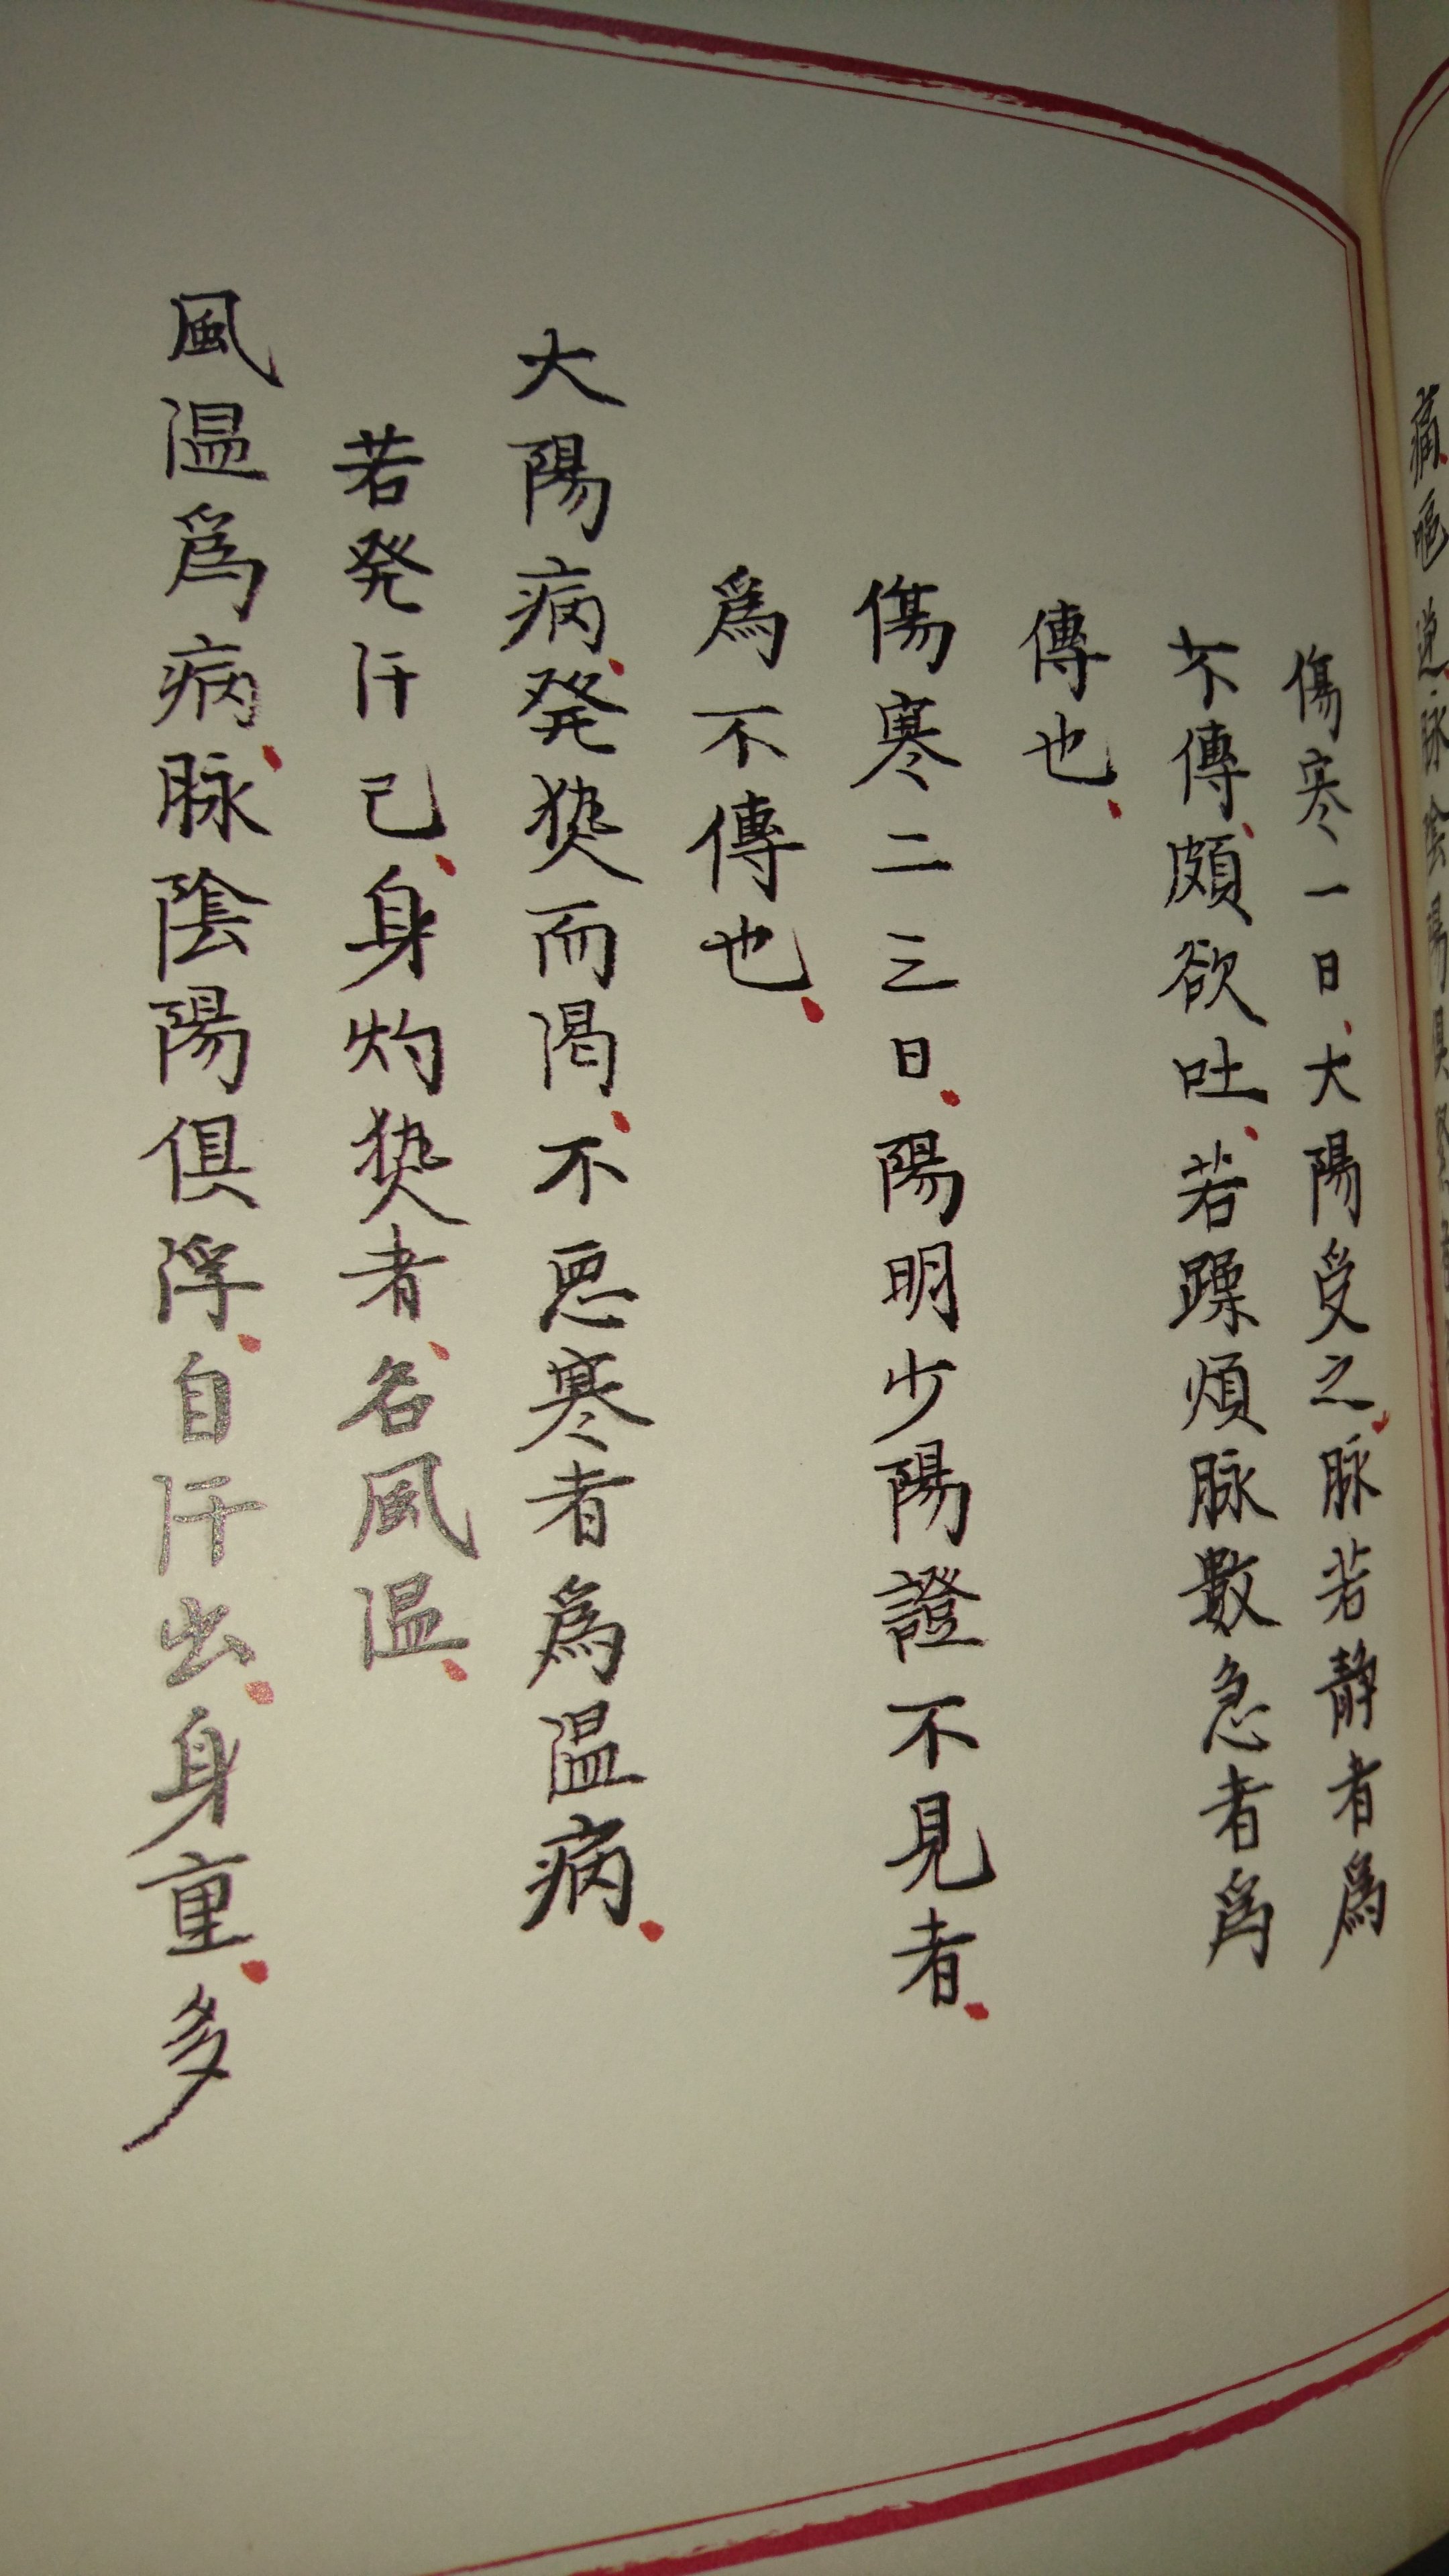 痛嘔逆、脉陰陽俱
傷寒一日、大陽受之、脉若静者為
不傳、頗欲吐、若躁煩脉數急者為
傳也、
傷寒二三日、陽明少陽證不見者、
為不傳也、
大陽病、発𤍠而渇、不惡寒者為温病、
若発汗已、身灼𤍠者、名風温、
風温為病、脉陰陽俱浮、自汗出、身重、多